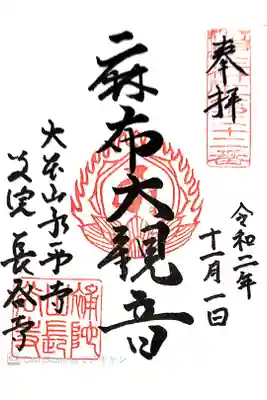 奉拝
令和二年
十一月一日
麻布大観音
大本山永平寺
別院 長谷寺